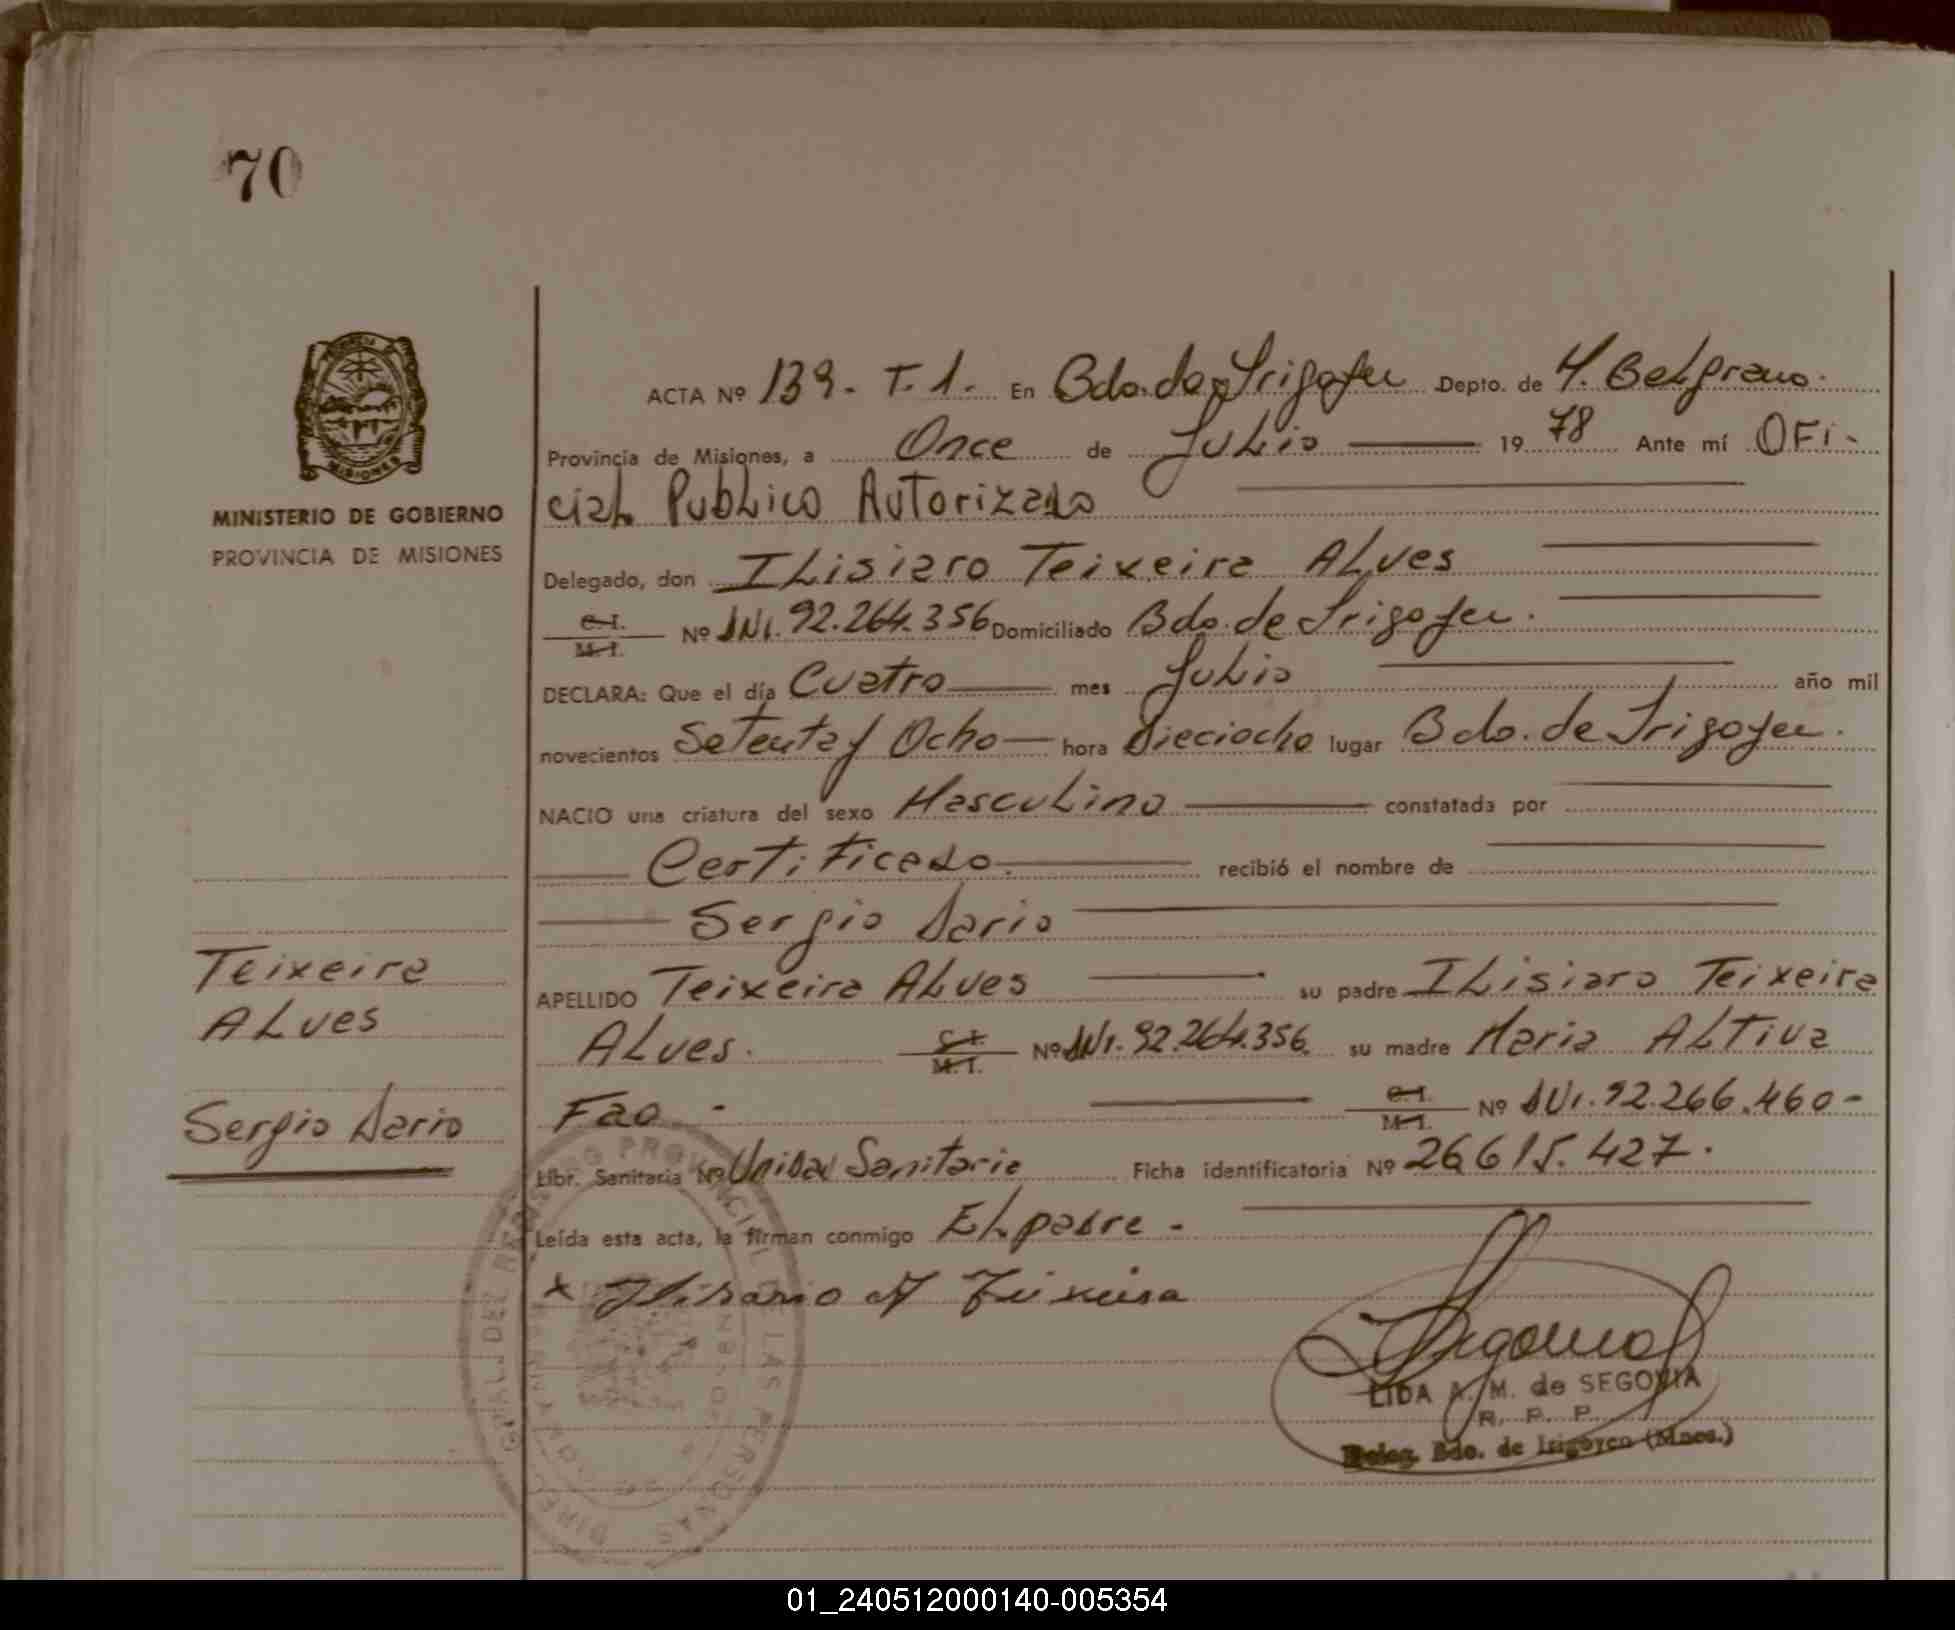 70
MISIONES
MINISTERIO DE GOBIERNO
PROVINCIA DE MISIONES
Teixeira
Alves
Sergio Dario
ACTA Nº 139. T.1. En Bdo. de Irigoyen Depto. de M. Belgrano.
Provincia de Misiones, a Once de Julio 19 78 Ante mí Ofi-
cial Publico Autorizado
Delegado, don Ilisiaro Teixeira Alves
C.I.
M.I. Nº DNI. 92.264.356 Domiciliado Bdo. de Irigoyen.
DECLARA: Que el día Cuatro mes Julio año mil
novecientos Setenta y Ocho hora Dieciocho lugar Bdo. de Irigoyen.
NACIO una criatura del sexo Masculino constatada por
Certificado. recibió el nombre de
Sergio Dario
APELLIDO Teixeira Alves su padre Ilisiaro Teixeira
Alves. C.I. M.I. Nº DNI. 92.264.356. su madre Maria Altiva
Fao - C.I. M.I. Nº DNI. 92.266.460-
Libr. Sanitaria Nº Unidad Sanitaria Ficha identificatoria Nº 26.615.427.
Leída esta acta, la firman conmigo El padre -
x Teixeira
Segovia
LIDA A. M. de SEGOVIA
R. P. P.
Deleg. Bdo. de Irigoyen (Mnes.)
GRAL. DEL REGISTRO PROVINCIAL DE LAS PERSONAS
01_240512000140-005354